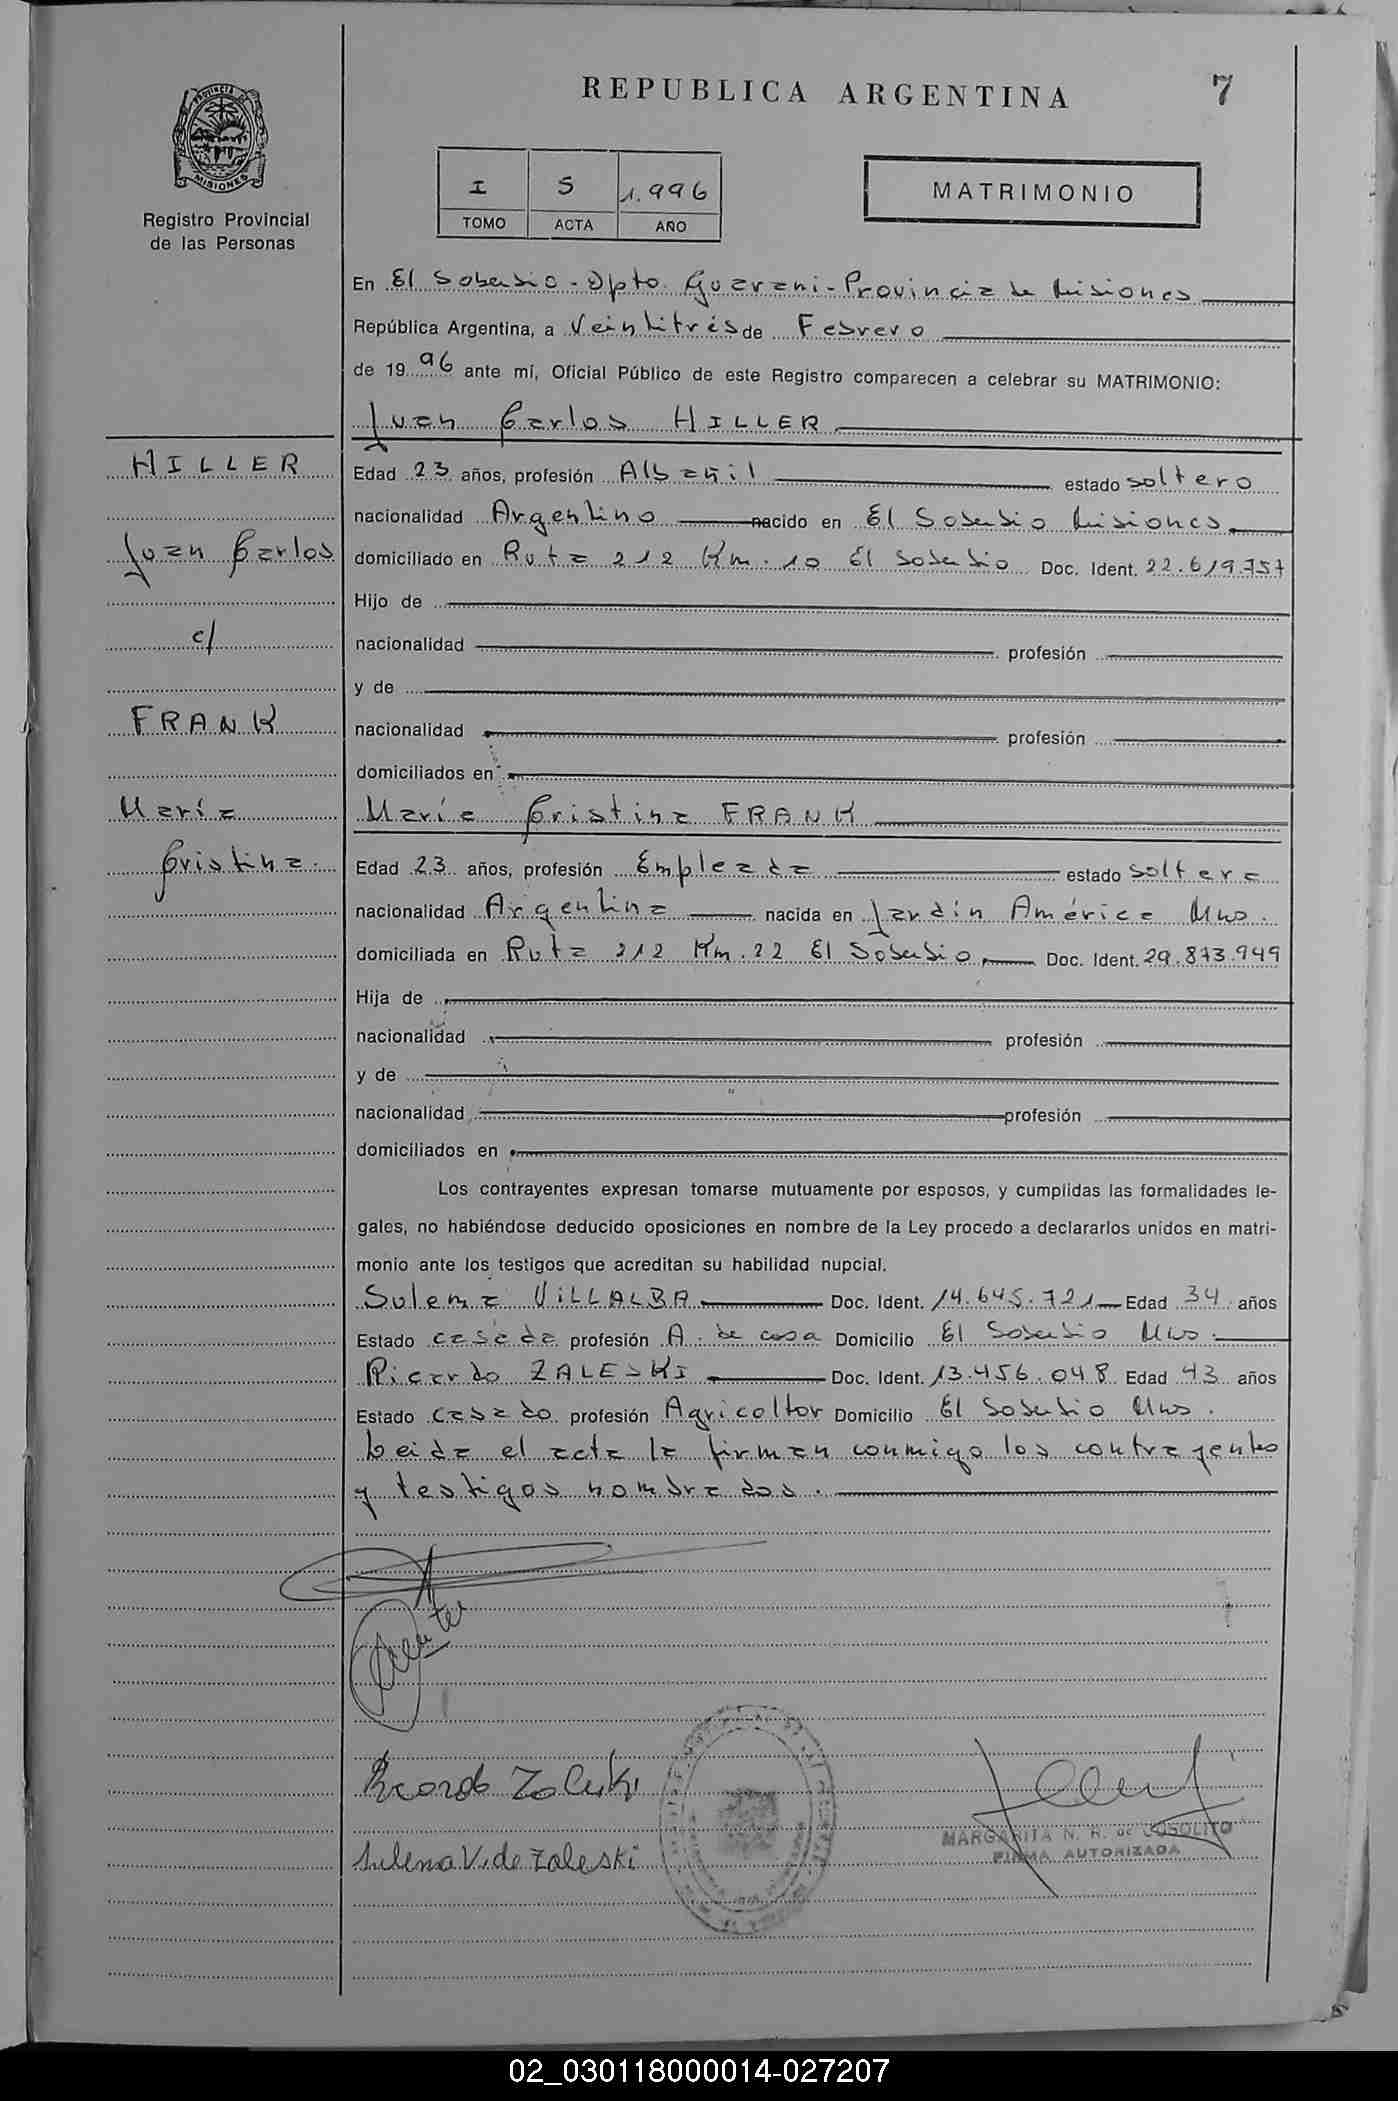 REPUBLICA ARGENTINA
7
PROVINCIA DE
MISIONES
Registro Provincial
de las Personas
I 5 1.996
TOMO ACTA AÑO
MATRIMONIO
En El Soberbio - Dpto. Guaraní - Provincia de Misiones
República Argentina, a Veintitrés de Febrero
de 1996 ante mí, Oficial Público de este Registro comparecen a celebrar su MATRIMONIO:
Juan Carlos HILLER
HILLER
Juan Carlos
c/
FRANK
María
Cristina.
Edad 23 años, profesión Albañil estado soltero
nacionalidad Argentino nacido en El Soberbio Misiones
domiciliado en Ruta 212 Km. 10 El Soberbio Doc. Ident. 22.619.757
Hijo de
nacionalidad profesión
y de
nacionalidad profesión
domiciliados en
María Cristina FRANK
Edad 23 años, profesión Empleada estado soltera
nacionalidad Argentina nacida en Jardín América Mnes.
domiciliada en Ruta 212 Km. 22 El Soberbio Doc. Ident. 29.873.949
Hija de
nacionalidad profesión
y de
nacionalidad profesión
domiciliados en
Los contrayentes expresan tomarse mutuamente por esposos, y cumplidas las formalidades le-
gales, no habiéndose deducido oposiciones en nombre de la Ley procedo a declararlos unidos en matri-
monio ante los testigos que acreditan su habilidad nupcial.
Sulema VILLALBA Doc. Ident. 14.645.721 Edad 34 años
Estado casada profesión A. de casa Domicilio El Soberbio Mnes.
Ricardo ZALESKI Doc. Ident. 13.456.048 Edad 43 años
Estado casado profesión Agricoltor Domicilio El Soberbio Mnes.
Leida el acta la firman conmigo los contrayentes
y testigos nombrados.
Ricardo Zaleski
Sulema V. de Zaleski
MARGARITA N. R. de COSOLITO
FIRMA AUTORIZADA
02_030118000014-027207